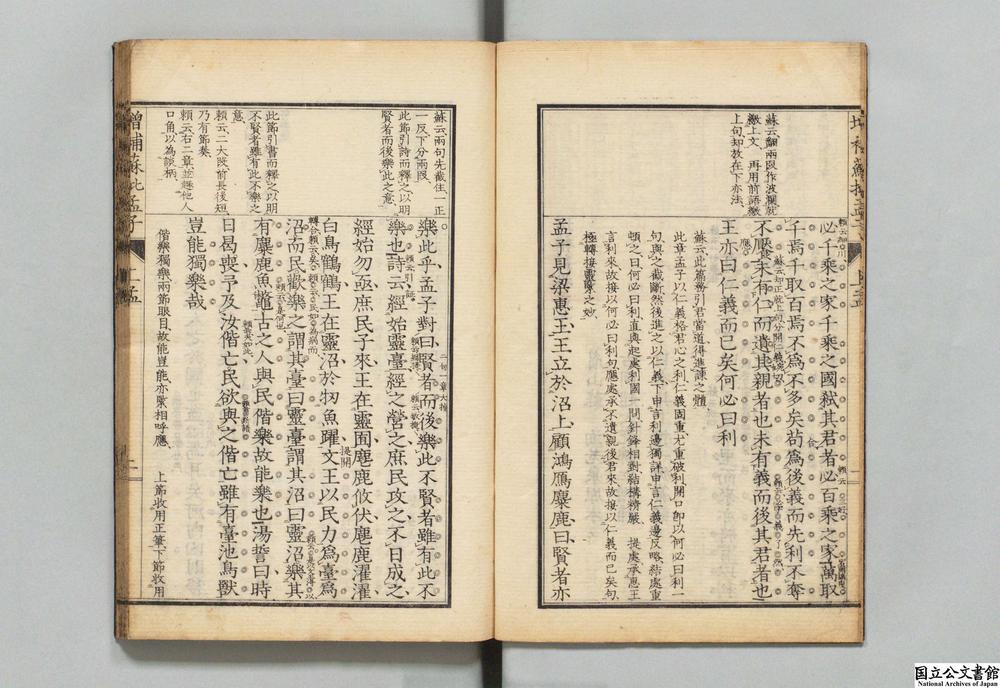 蘇云翻兩段作波瀾就
繳上文再用前語繳
上句却放在下亦法
必千乘之家千乘之國弑其君者必百乘之家萬取
千焉千取百焉不為不多矣苟為後義而先利不奪
不厭未有仁而遺其親者也未有義而後其君者也
王亦曰仁義而已矣何必曰利
蘇云此篇務引君當道得進諫之體
此章孟子以仁義格君心之利仁義固重尤重破利開口即以何必曰利一
句與之截斷然後進之以仁義下申言利邊獨詳申言仁義邊反略結處重
頓之曰何必曰利直與起處利國一問針鋒相對結構精嚴 提處承惠王
言利來故接以何必曰利句應處承不遺親後君來故接以仁義而已矣句
極轉接靈緊之妙
孟子見梁惠王王立於沼上顧鴻鴈麋鹿曰賢者亦
蘇云兩句先截住一正
一反下分兩段
此節引詩而釋之以明
賢者而後樂此之意
此節引書而釋之以明
不賢者雖有此不樂之
意
賴云二大段前長後短
乃有節奏
賴云右二章並極他人
口角以為談柄
樂此乎孟子對曰賢者而後樂此不賢者雖有此不
樂也詩云經始靈臺經之營之庶民攻之不日成之
經始勿亟庶民子來王在靈囿麀鹿攸伏麀鹿濯濯
白鳥鶴鶴王在靈沼於牣魚躍文王以民力為臺為
沼而民歡樂之謂其臺曰靈臺謂其沼曰靈沼樂其
有麋鹿魚鼈古之人與民偕樂故能樂也湯誓曰時
日曷喪予及汝偕亡民欲與之偕亡雖有臺池鳥獸
豈能獨樂哉
偕樂獨樂兩節眼目故能豈能亦緊相呼應 上節收用正筆下節收用
增補蘇批孟子
上孟
一
国立公文書館
National Archives of Japan